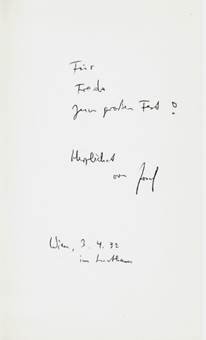 Für
Frode
zum großen Fest!
Herzlichst
von Josef
Wien, 3. 4. 92
im